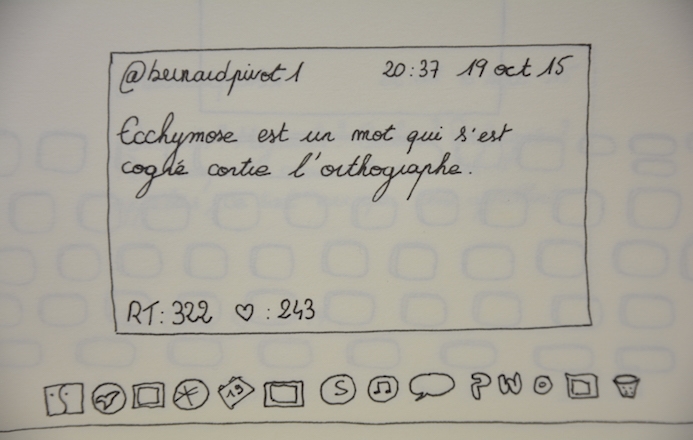 @bernardpivot1 20:37 19 oct 15
Ecchymose est un mot qui s'est
cogné contre l'orthographe.
RT: 322 ♡ : 243
19 S P W